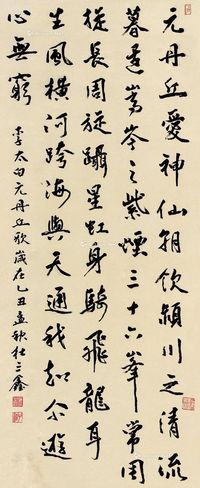 元丹丘愛神仙朝飲潁川之清流
暮還嵩岑之紫煙三十六峯常周
旋長周旋躡星虹身騎飛龍耳
生風橫河跨海與天通我知尔遊
心無窮
李太白元丹丘歌歲在乙丑孟秋杜三鑫